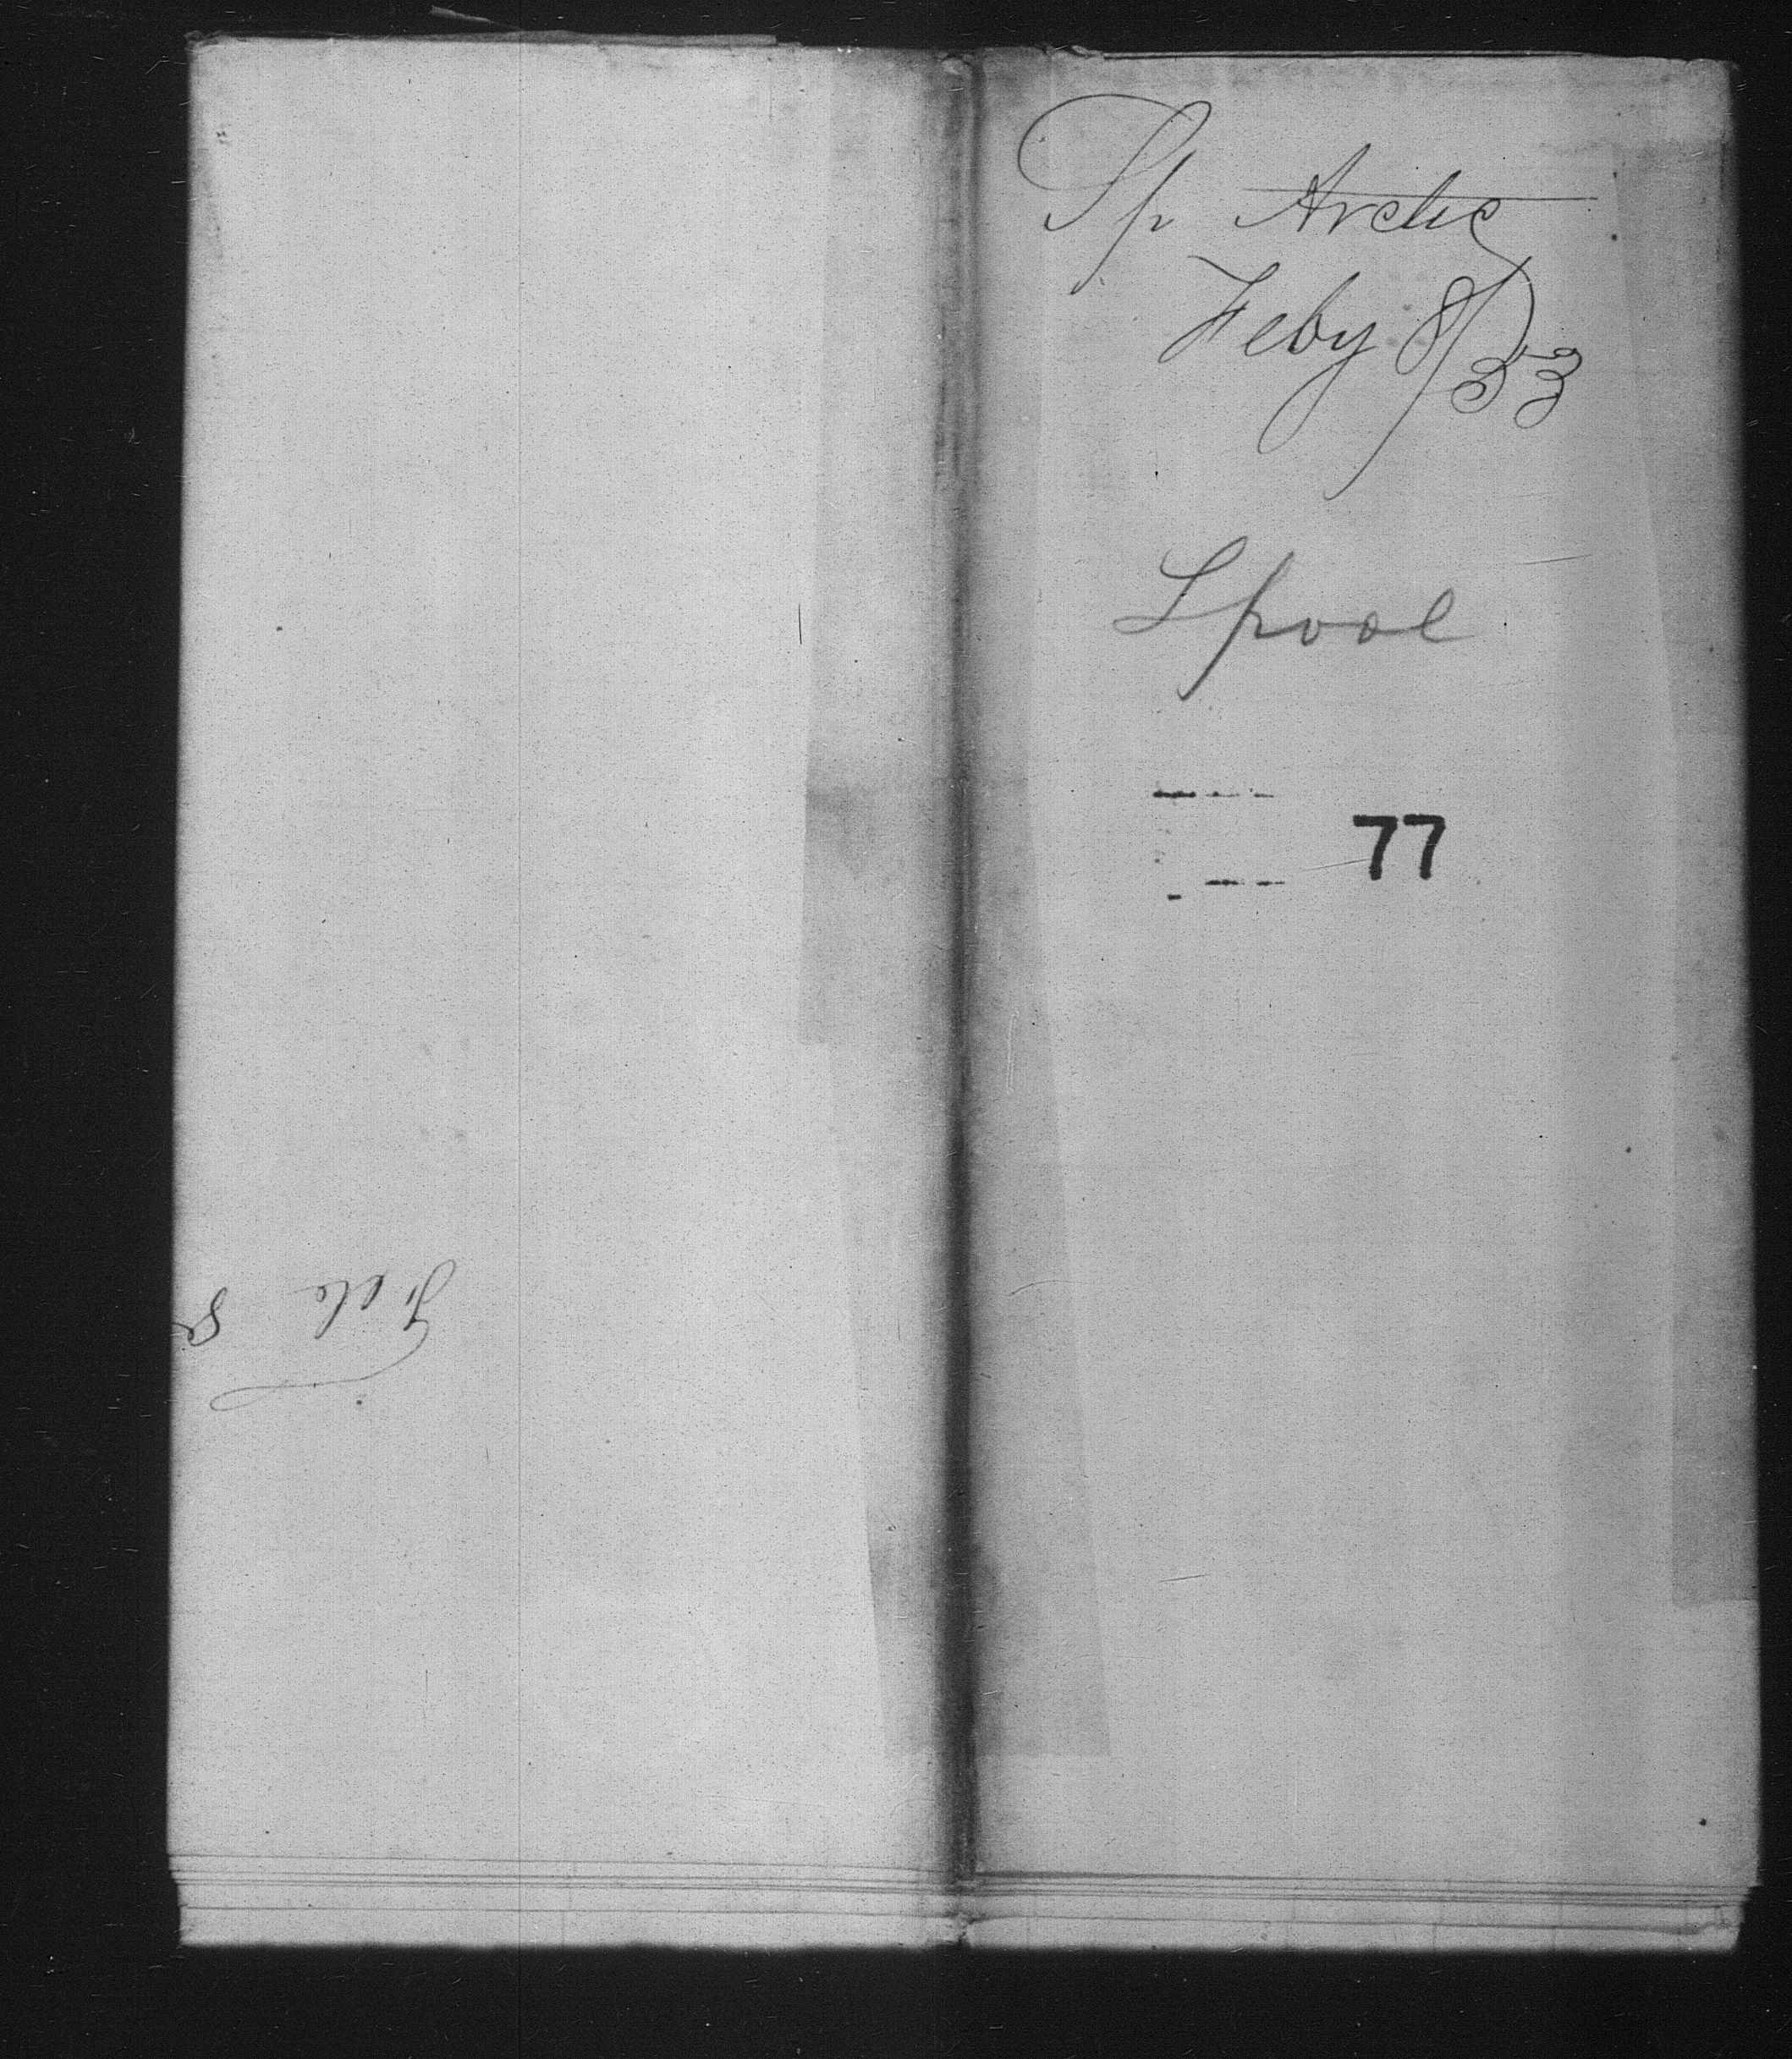 Sp Arctic
Feby 8/53
Lpool
77
Feb 8